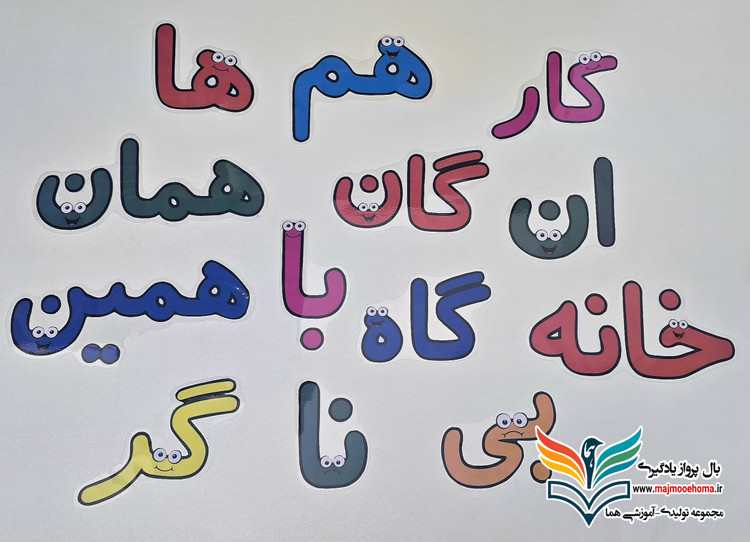 کار هم ها
ان گان همان
خانه گاه با همین
بی نا گر
بال پرواز یادگیری
www.majmooehoma.ir
مجموعه تولیدی-آموزشی هما